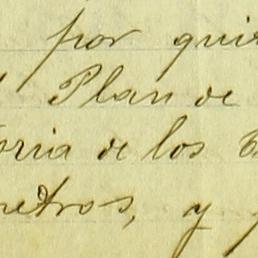 por quin
Plan de
oria de los E
metros, y